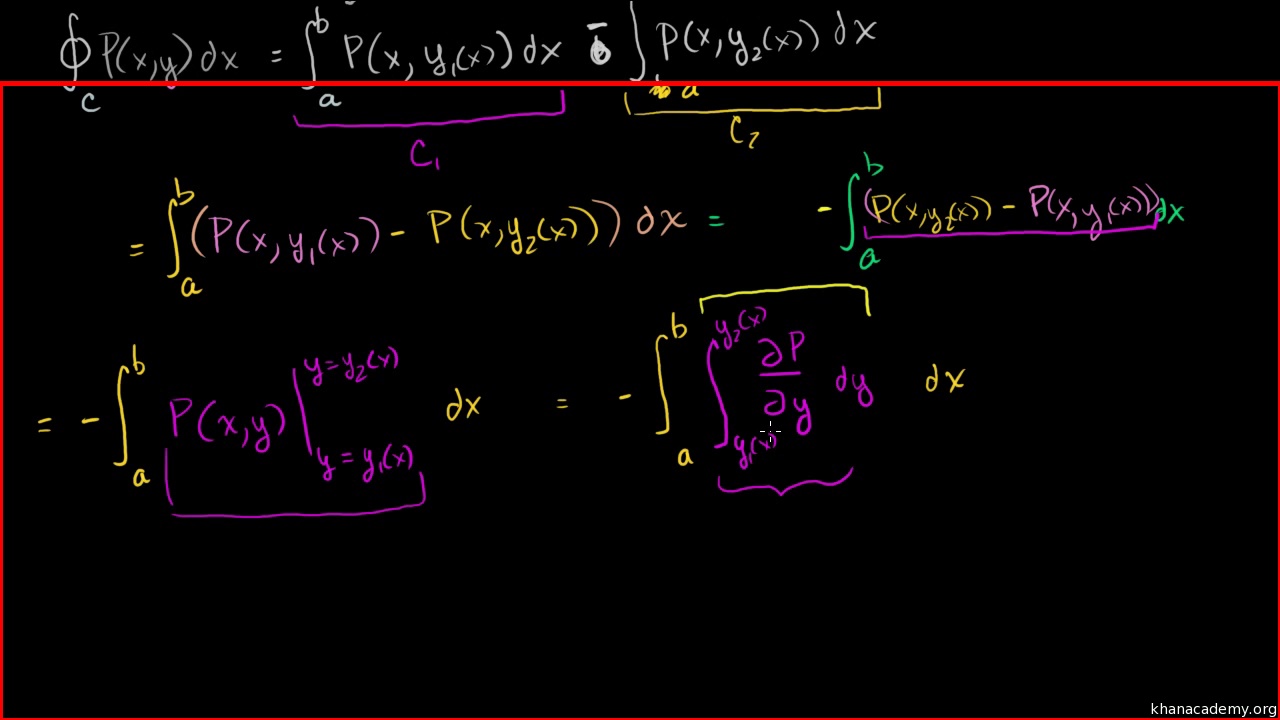 ∮_C P(x,y) dx = ∫_a^b P(x, y₁(x)) dx - ∫_a P(x, y₂(x)) dx
C₁ C₂
= ∫_a^b (P(x, y₁(x)) - P(x, y₂(x))) dx = - ∫_a^b (P(x, y₂(x)) - P(x, y₁(x))) dx
= - ∫_a^b P(x,y) |_{y = y₁(x)}^{y = y₂(x)} dx = - ∫_a^b ∫_{y₁(x)}^{y₂(x)} ∂P/∂y dy dx
khanacademy.org